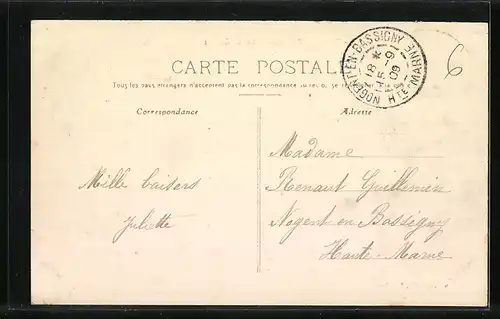 NOGENT-EN-BASSIGNY HTE-MARNE
18 *
5 -9
09
6
CARTE POSTALE
Tous les pays étrangers n'acceptent pas la correspondance au
Correspondance
Adresse
Mille baisers
Juliette
Madame
Renaut Guillemin
Nogent en Bassigny
Haute-Marne